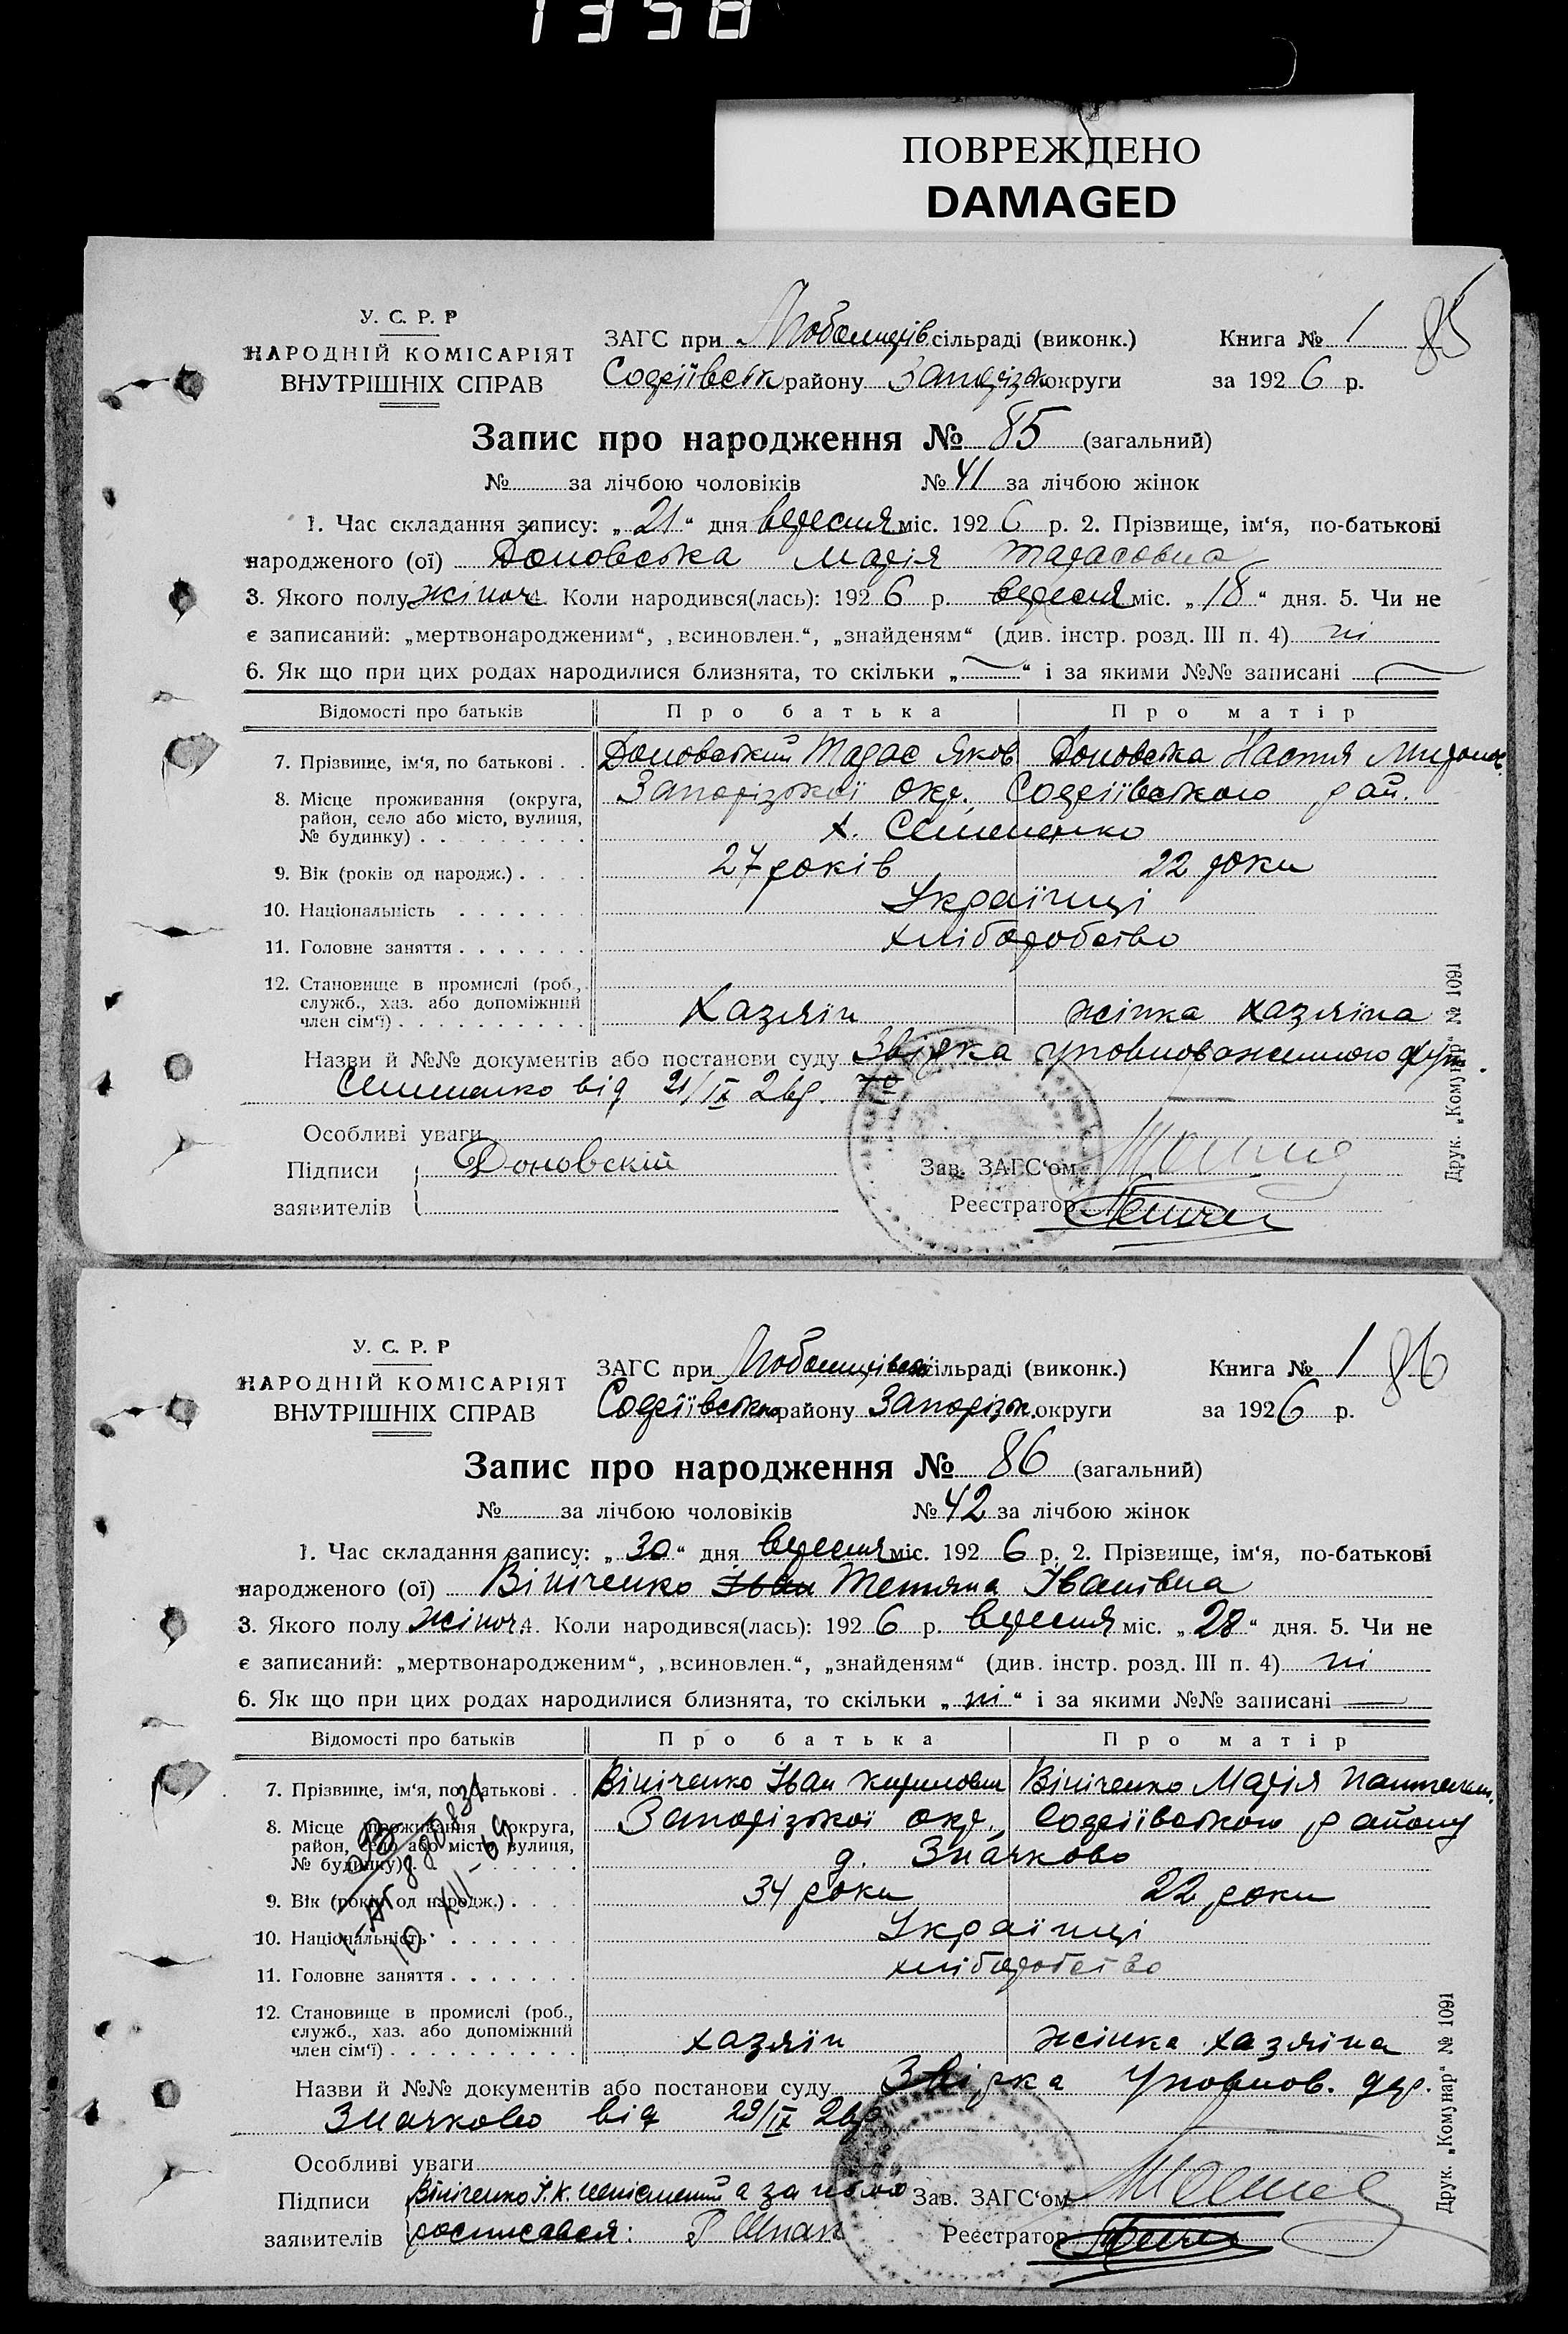 1358
ПОВРЕЖДЕНО
DAMAGED
У. С. Р. Р
НАРОДНІЙ КОМІСАРІЯТ
ВНУТРІШНІХ СПРАВ
ЗАГС при сільраді (виконк.) Книга № 1 85
Софіївськ району Запорізьк округи за 1926 р.
Запис про народження № 85 (загальний)
№ за лічбою чоловіків № 41 за лічбою жінок
1. Час складання запису: „21“ дня вересня міс. 1926 р. 2. Прізвище, ім‘я, по-батькові
народженого (ої) Доновська Марія Тарасовна
3. Якого полу жіноч. 4. Коли народився(лась): 1926 р. вересня міс. „18“ дня. 5. Чи не
є записаний: „мертвонародженим“, „всиновлен.“, „знайденям“ (див. інстр. розд. III п. 4) ні
6. Як що при цих родах народилися близнята, то скільки „—“ і за якими №№ записані —
Відомості про батьків Про батька Про матір
7. Прізвище, ім‘я, по батькові . . Доновський Тарас Яков Доновська Настя Миронов.
8. Місце проживання (округа, Запорізької окр. Софіївського рай.
район, село або місто, вулиця,
№ будинку) . . . . . . . . . х. Семененко
9. Вік (років од народж.) . . . . 27 років 22 роки
10. Національність . . . . . . . Українці
11. Головне заняття . . . . . . . хліборобство
12. Становище в промислі (роб.,
служб., хаз. або допоміжний
член сім‘ї) . . . . . . . . . . Хазяїн жінка хазяїна
Назви й №№ документів або постанови суду Звірка уповноваженного
від 21/IX 26р.
Особливі уваги
Підписи Доновскій Зав. ЗАГС‘ом
заявителів Реєстратор
Друк. „Комунар“ № 1091
У. С. Р. Р
НАРОДНІЙ КОМІСАРІЯТ
ВНУТРІШНІХ СПРАВ
ЗАГС при сільраді (виконк.) Книга № 1 86
Софіївськ району Запорізьк. округи за 1926 р.
Запис про народження № 86 (загальний)
№ за лічбою чоловіків № 42 за лічбою жінок
1. Час складання запису: „30“ дня вересня міс. 1926 р. 2. Прізвище, ім‘я, по-батькові
народженого (ої) Вініченко Іван Тетяна Іванівна
3. Якого полу жіноч. 4. Коли народився(лась): 1926 р. вересня міс. „28“ дня. 5. Чи не
є записаний: „мертвонародженим“, „всиновлен.“, „знайденям“ (див. інстр. розд. III п. 4) ні
6. Як що при цих родах народилися близнята, то скільки „ні“ і за якими №№ записані —
Відомості про батьків Про батька Про матір
7. Прізвище, ім‘я, по батькові . . Вініченко Іван Кирилович Вініченко Марія
8. Місце проживання (округа, Запорізької окр., Софіївського району
район, село або місто, вулиця,
№ будинку) . . . . . . . . . д. Значково
9. Вік (років од народж.) . . . . 34 роки 22 роки
10. Національність . . . . . . . Українці
11. Головне заняття . . . . . . . хліборобство
12. Становище в промислі (роб.,
служб., хаз. або допоміжний
член сім‘ї) . . . . . . . . . . хазяїн жінка хазяїна
Назви й №№ документів або постанови суду Звірка Уповнов. дер.
Значково від 29/IX 26р
Особливі уваги
Підписи Вініченко І. К. а за нього Зав. ЗАГС‘ом
заявителів росписався: Реєстратор
Друк. „Комунар“ № 1091